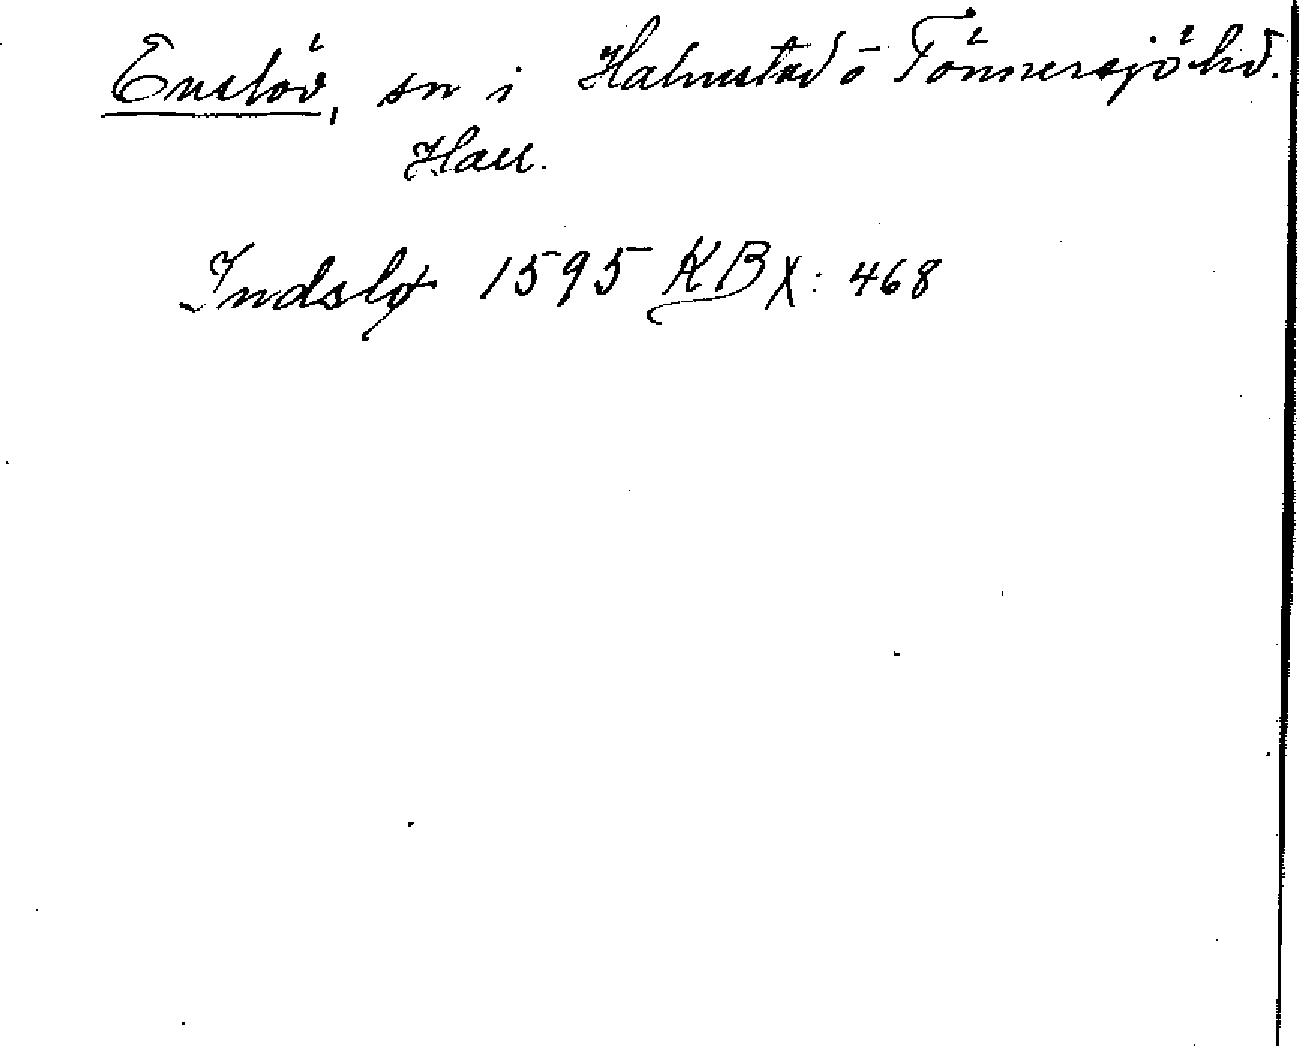 Enslöv, sn i Halmstad o Tönnersjö hd.
Hall.
Indsløf 1595 KB X: 468